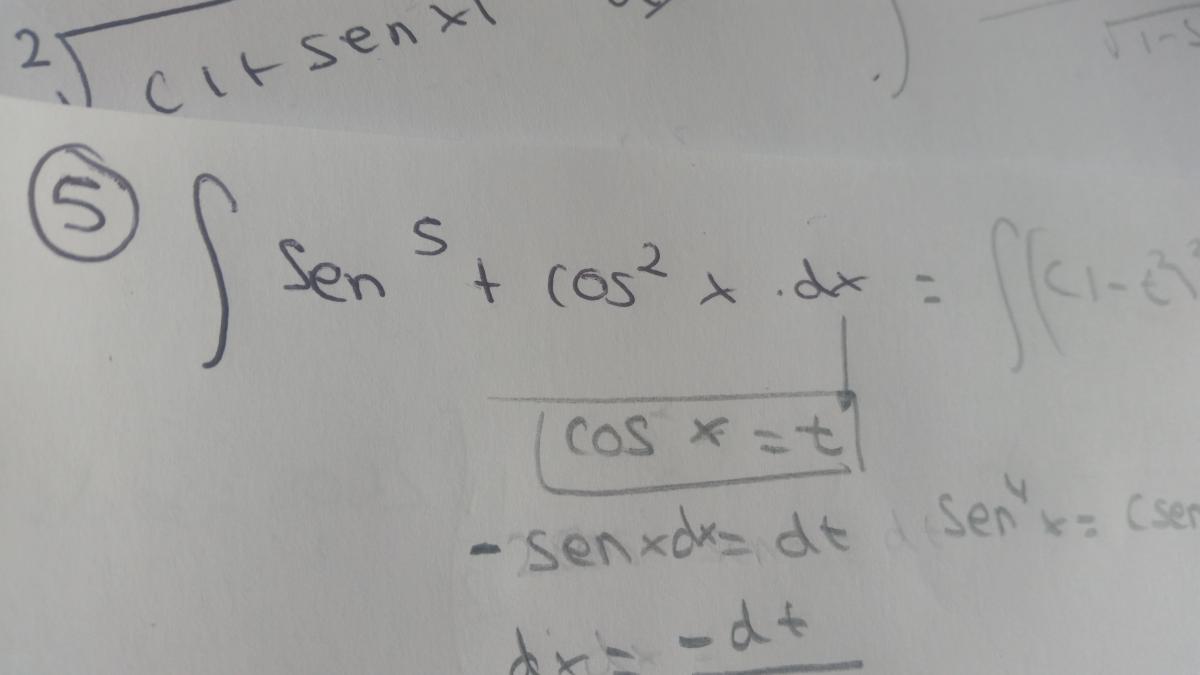 2√(1+senx)
√1-s
⑤ ∫ Sen⁵ + cos² x .dx = ∫((1-t²)²
cos x = t
- senxdx= dt sen⁴x= (sen
dx= -dt